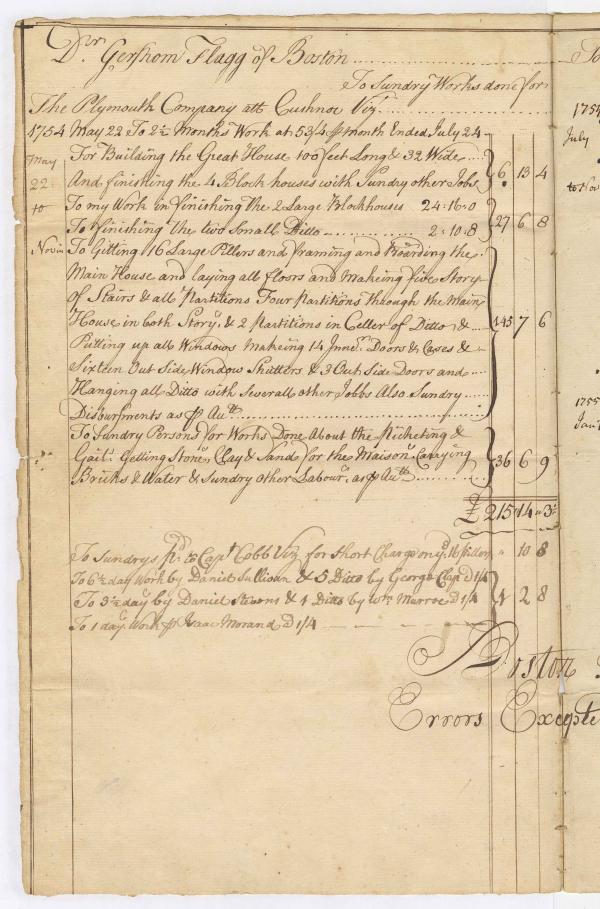 Dr. Gershom Flagg of Boston
To Sundry Works done for
The Plymouth Company att Cushnoc Viz
1754 May 22 To 2½ Months Work at 53/4 ⅌ month Ended July 24
May 22 to Novm
For Building the Great House 100 feet Long & 32 Wide
And finishing the 4 Block houses with Sundry other Jobs 6. 13 4
To my Work in finishing the 2 Large Blockhouses 24=16=0
To finishing the two Small Ditto 2=10=8 27 6 8
To Gitting 16 Large Pillers and framing and Boarding the
Main House and laying all floors and Makeing five Story
of Stairs & all Partitions Four partitions through the Main
House in both Story,s & 2 partitions in Celler of Ditto &
Putting up all Windows Makeing 14 Inner Doors & Cases &
Sixteen Out Side Window Shutters & 3 Out Side Doors and
Hanging all Ditto with Severall other Jobbs Also Sundry
Disbursments as ⅌ Acctt 145 7 6
To Sundry Persons for Works Done About the Picketing &
Gait: Getting Stones, Clay & Sand for the Maison Carrying
Bricks & Water & Sundry other Labour,s as ⅌ Acctt 36 6 9
£ 215 14 3
To Sundrys pd. to Capt Cobb Viz for Short Charge on 16 pillors " 10 8
To 6½ day Work by Daniel Sullivan & 5 Ditto by George D 1/4
To 3½ day by Daniel Stevens & 1 Ditto by Wm Murroe D 1/4 2 8
To 1 day,s Work ⅌ Isaac Morand D 1/4
Boston
Errors Excepte
1754
July
to Nov
1755